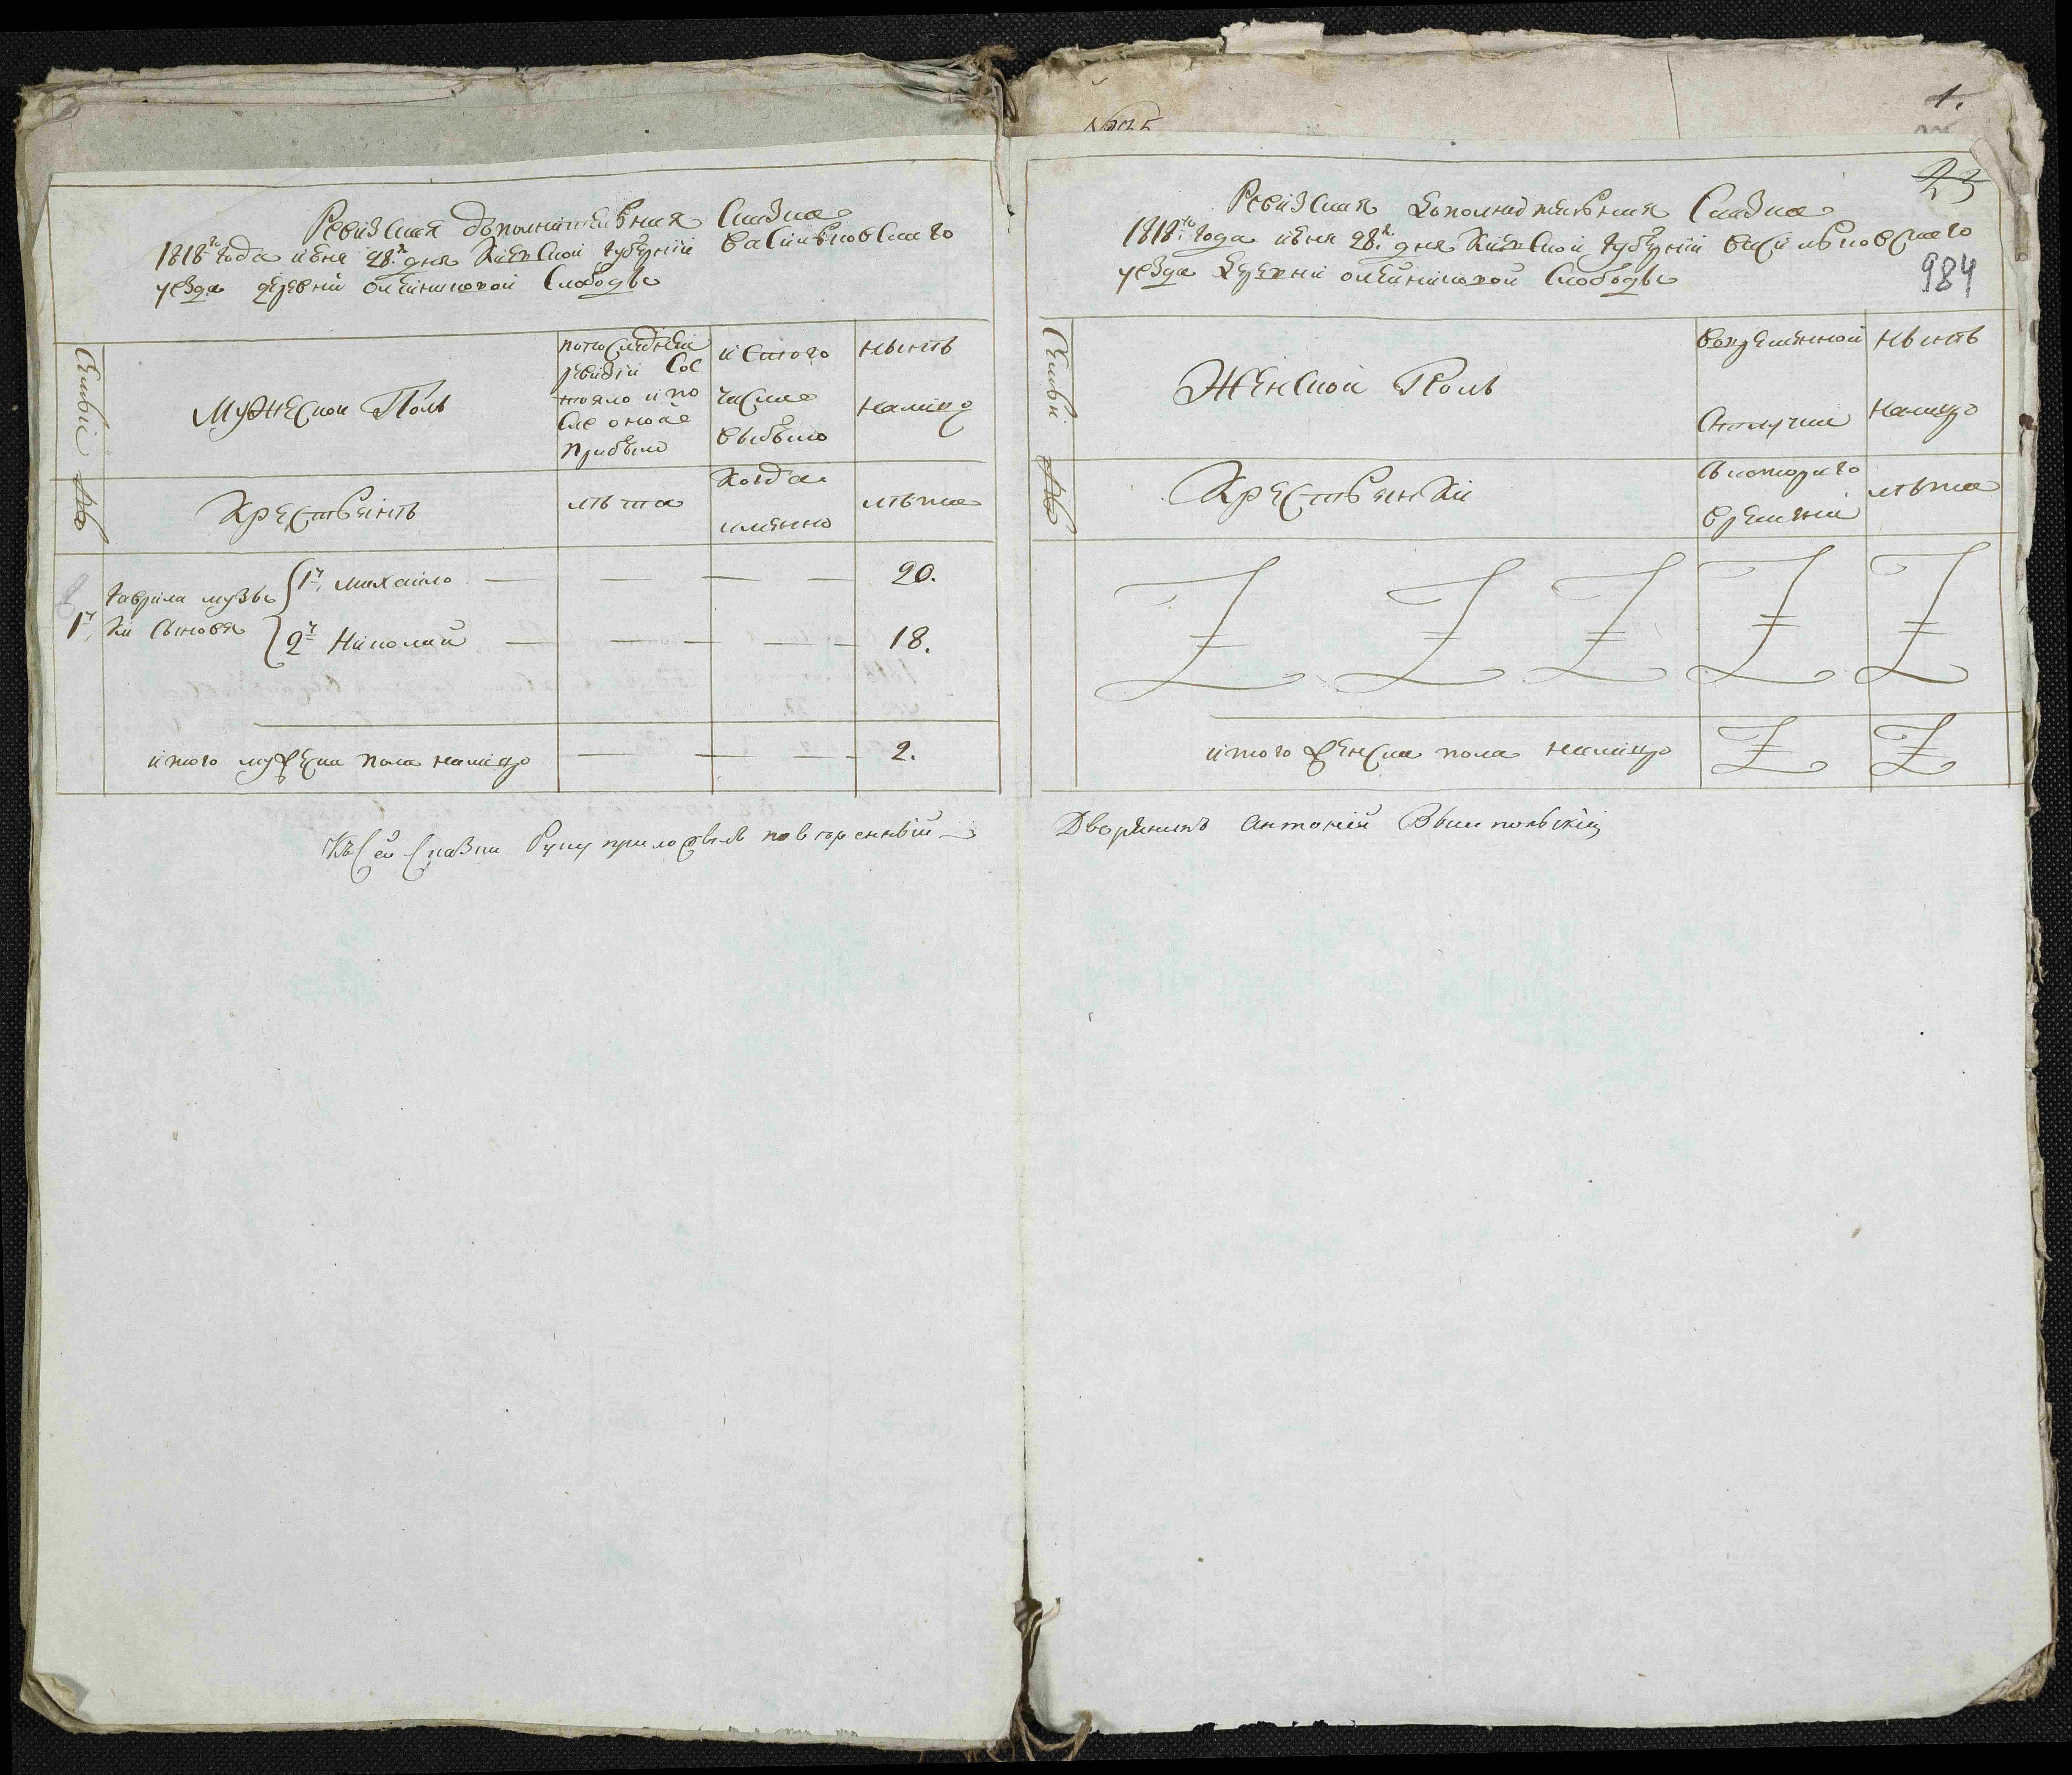 Ревизская дополнительная Сказка
1818го года июня 28го дня Киевской губернии Васильковскаго
уезда деревни олейниковой Слободы
Семьи №
Мужеской Полъ
по последней
ревизии Сос
тояло и по
сле оноя
прибыло
и стого
числа
выбыло
нынѣ
налицо
Крестьянѣ
лѣта
Когда
именно
лѣта
1й
гаврила музы
ки Сыновя
1й михайло — — — — 20.
2й Николай — — — — 18.
итого мужеска пола налицо — — — — 2.
Къ Сей Сказки Руку приложылъ повѣренный
1.
23
984
Ревизская дополнителная Сказка
1818го года июня 28го дня Киевской губернии васильковскаго
уезда деревни олейниковой Слободы
Семьи №
Женской Полъ
вовременной
отлучки
нынѣ
налицо
Крестьянки
Скотораго
времени
лѣта
итого женска пола налицо
Дворянинъ Антоній Вышпольскій